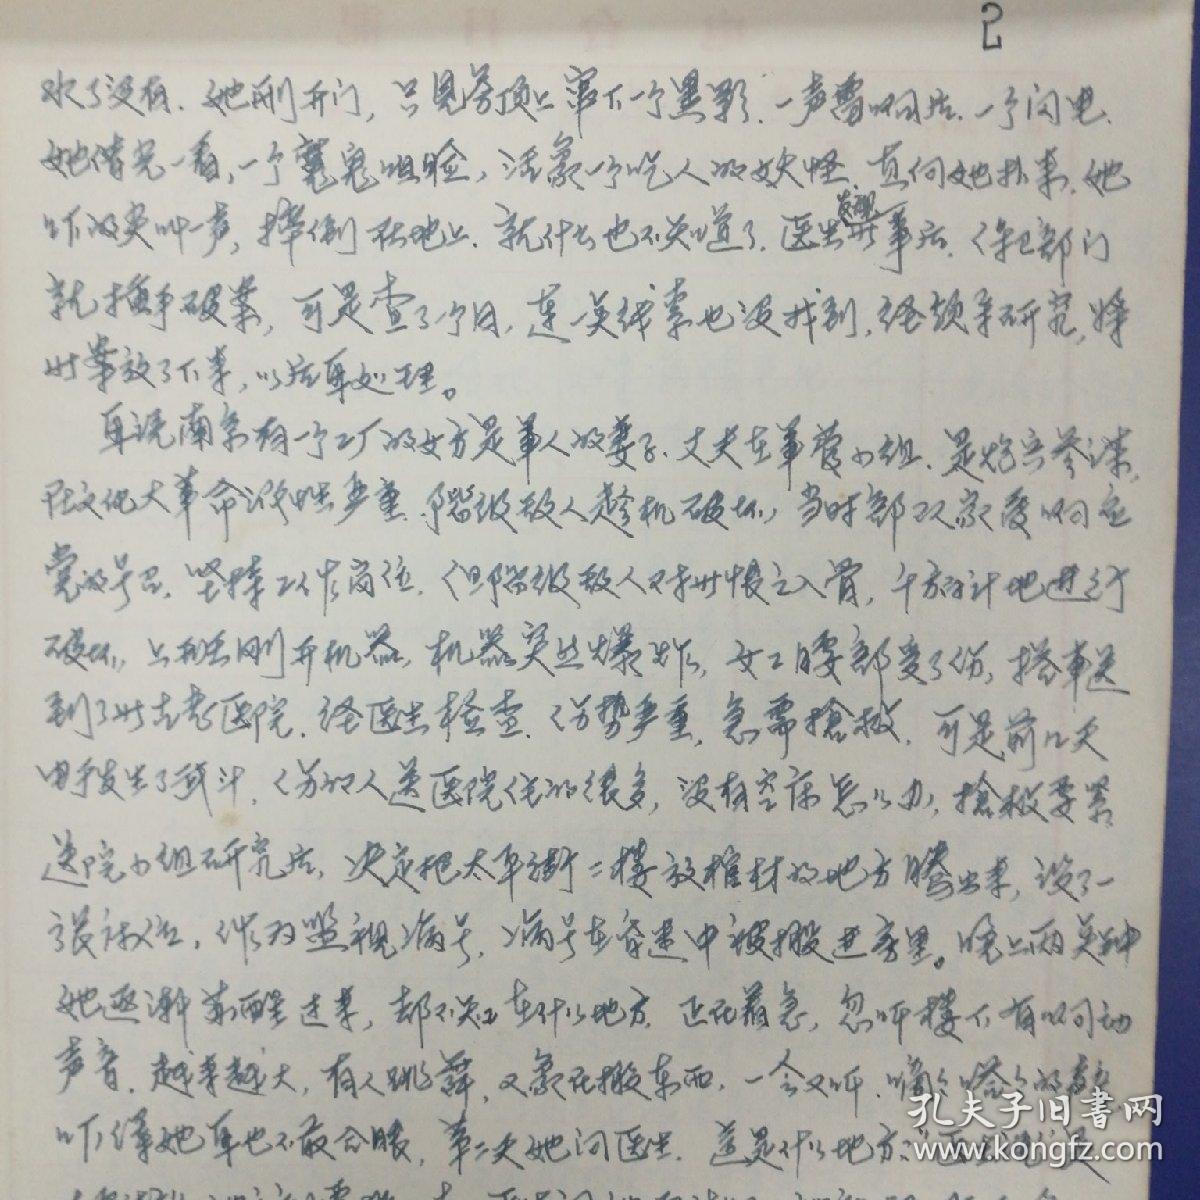 2
次了没有.她刚开门,只见旁顶上窜下一个黑影.一声雷响后.一个闪电.
她借光一看,一个魔鬼咀脸,活象一个吃人的妖怪.直向她扑来.她
吓的尖叫一声,摔倒在地上.就什么也不知道了.医生发现此事后.保卫部门
就插手破案,可是查了个月,连一点线索也没找到.经领导研究,将
此案放了下来,以后再处理。
再说南京有一个工厂的女方是军人的妻子.丈夫在军管小组.是炮兵参谋.
在文化大革命派性严重.阶级敌人趁机破坏,当时部队家属响应
党的号召.坚持工作岗位.但阶级敌人对此恨之入骨,千方百计地进行
破坏,上班去刚开机器,机器突然爆炸,女工腰部受了伤,搭车送
到了此古老医院.经医生检查.伤势严重.急需搶救.可是前几天
由于发生了武斗.伤的人送医院住的很多,没有空床怎么办,搶救要紧
送院小组研究后,决定把太平街二楼放棺材的地方腾出来,设了一
张床位,作为监视病号.病号在昏迷中被搬进房里。晚上两点钟
她逐渐苏醒过来,却不知在什么地方.正在着急,忽听楼下有响动
声音.越来越大,有人跳舞,又象在搬东西.一会又听.嘀々嗒々的
吓得她再也不敢合眼,第二天她问医生.这是什么地方?医生也没
孔夫子旧書网
www.kongfz.com